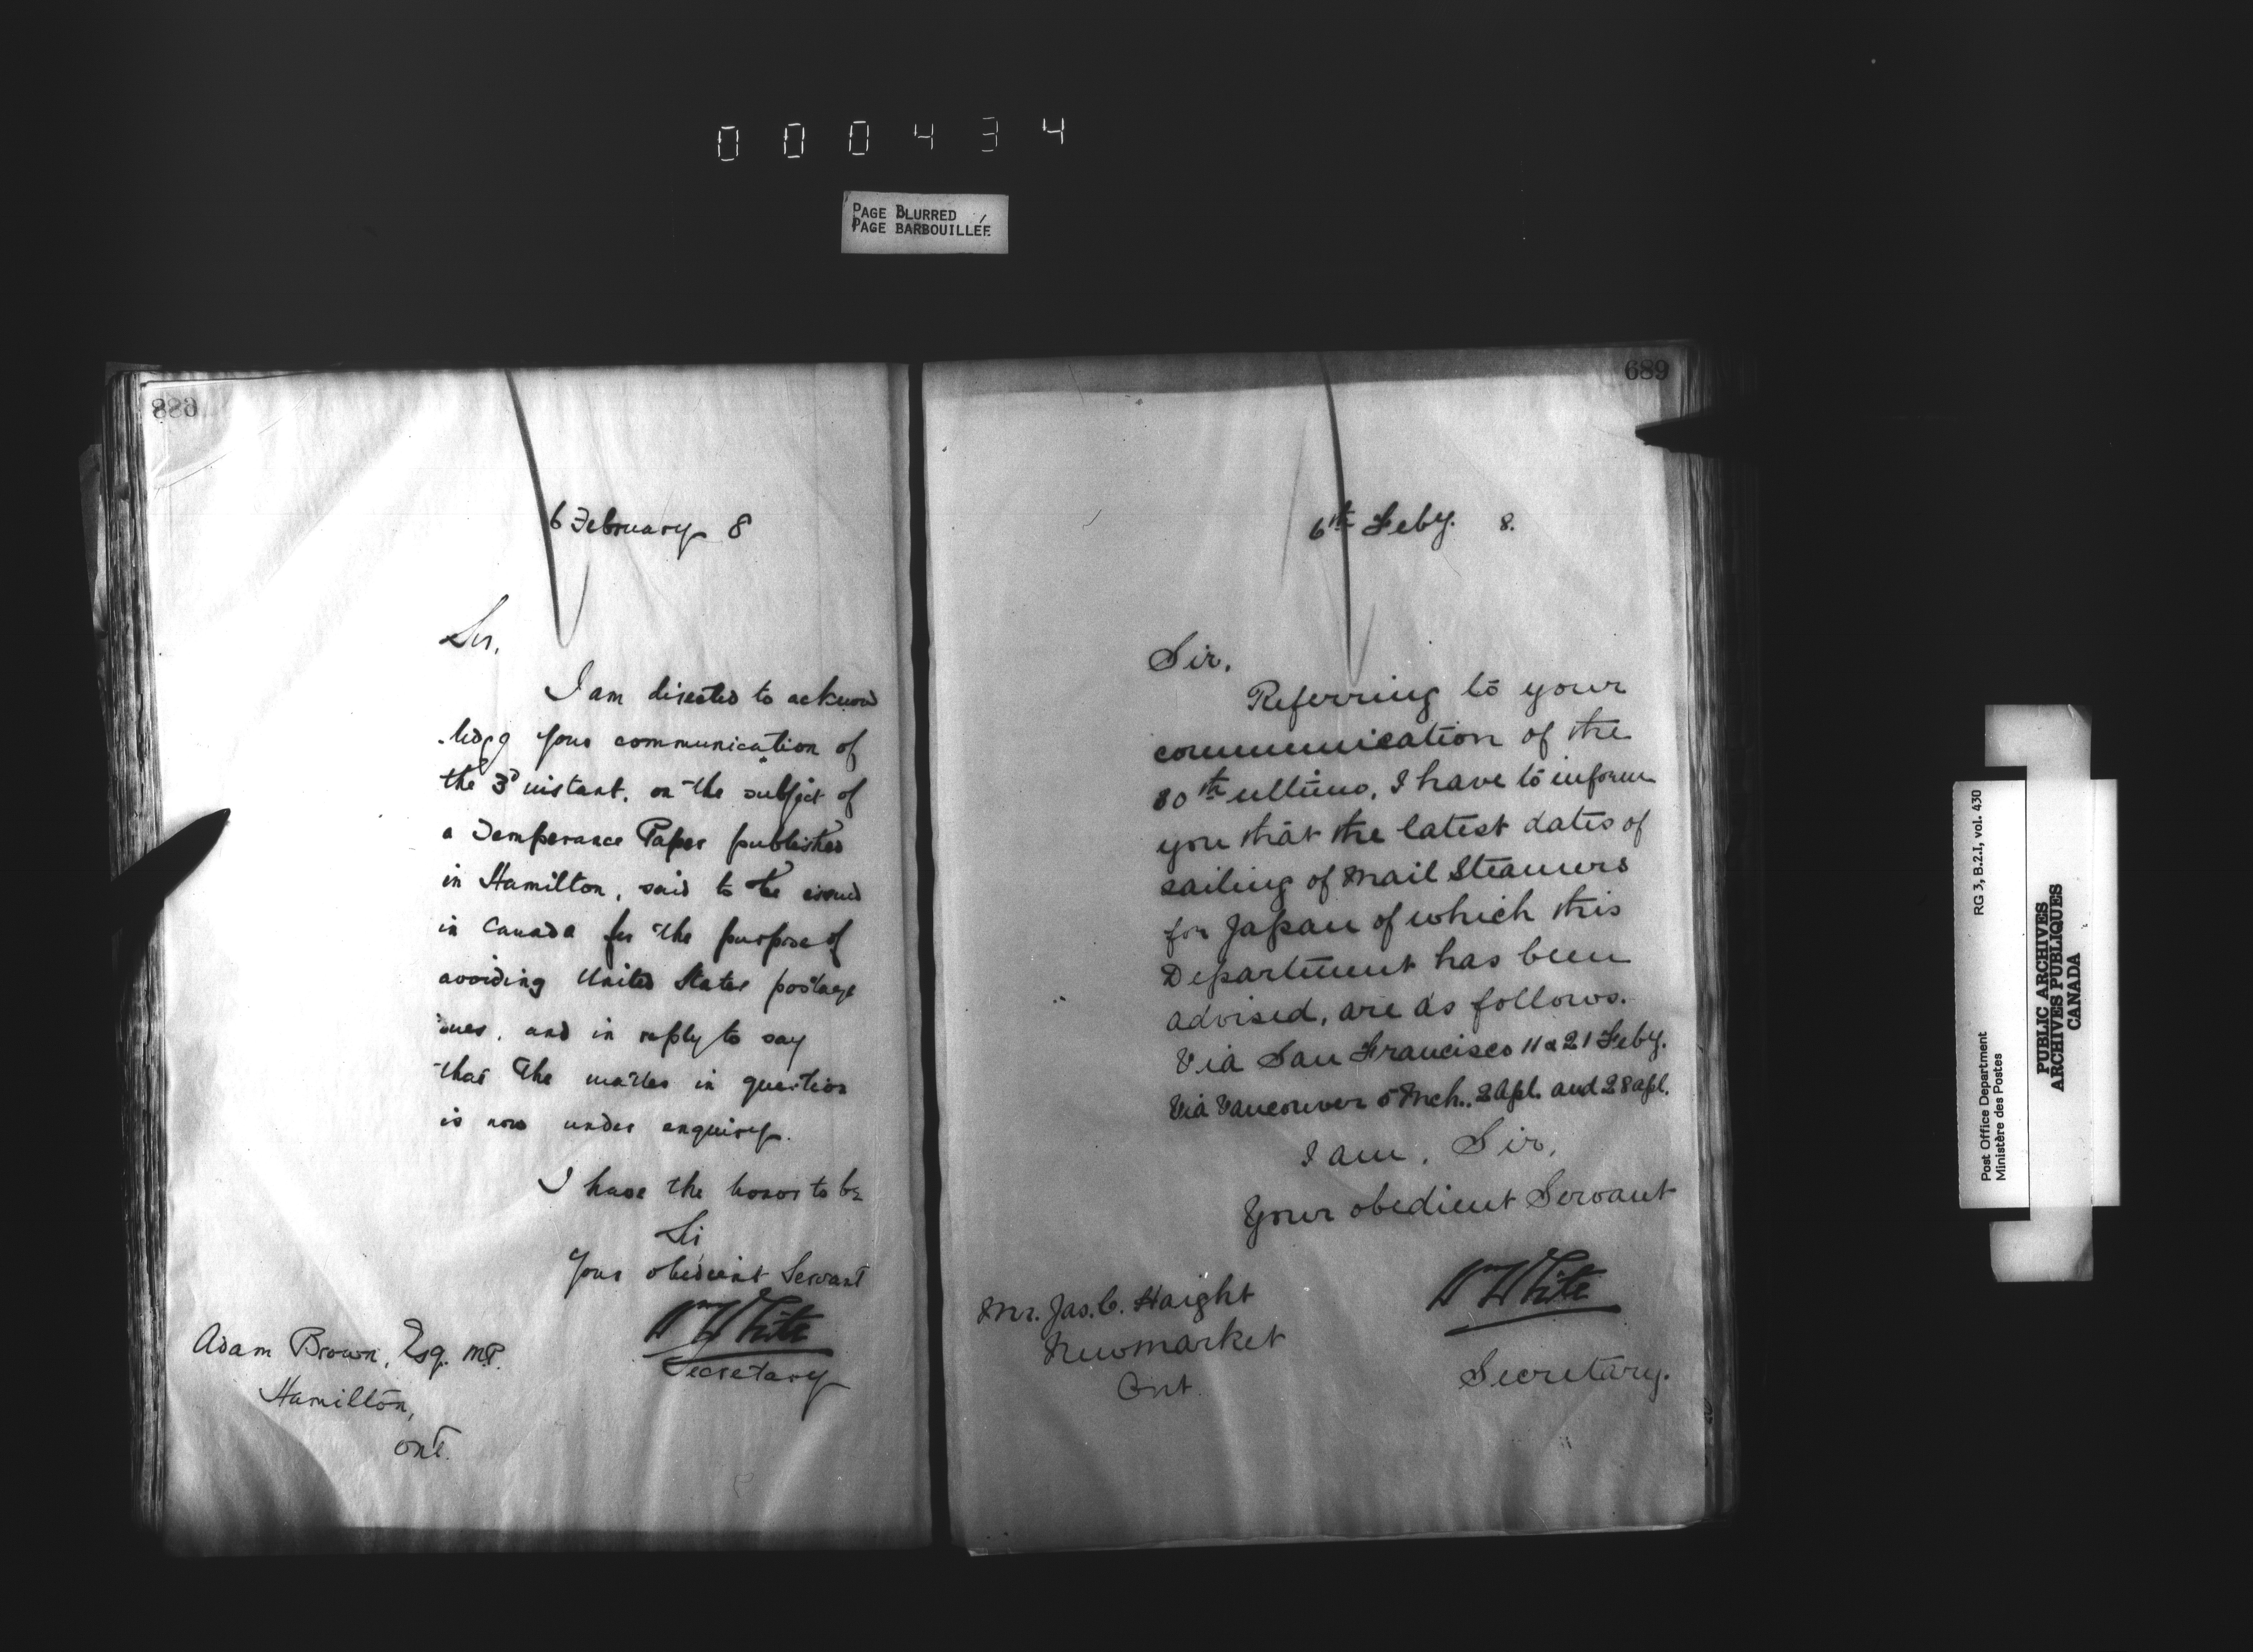 000434
PAGE BLURRED
PAGE BARBOUILLÉE
688
6 February 8
Sir,
I am directed to acknow
-ledge your communication of
the 3d instant, on the subject of
a Temperance Paper published
in Hamilton, said to be issued
in Canada for the purpose of
avoiding United States postage
and in reply to say
that the matter in question
is now under enquiry.
I have the honor to be
Sir
Your obedient Servant
Wm White
Secretary
Adam Brown, Esq. M.P.
Hamilton,
Ont.
689
6th Feby. 8.
Sir,
Referring to your
communication of the
30th ultimo, I have to inform
you that the latest dates of
sailing of Mail Steamers
for Japan of which this
Department has been
advised, are as follows.
Via San Francisco 11 & 21 Feby.
Via Vancouver 5 Mch., 2 Apl. and 28 Apl.
I am, Sir,
Your obedient Servant
Wm White
Secretary.
Mr. Jas. C. Haight
Newmarket
Ont.
Post Office Department
Ministère des Postes
RG 3, B.2.I, vol. 430
PUBLIC ARCHIVES
ARCHIVES PUBLIQUES
CANADA